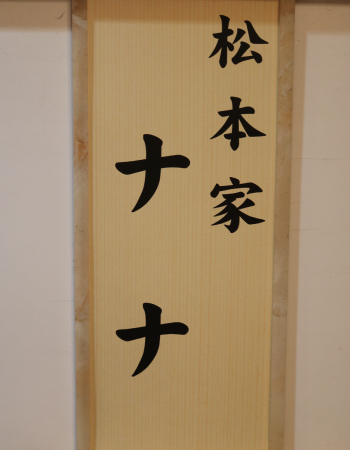 松本家
ナナ